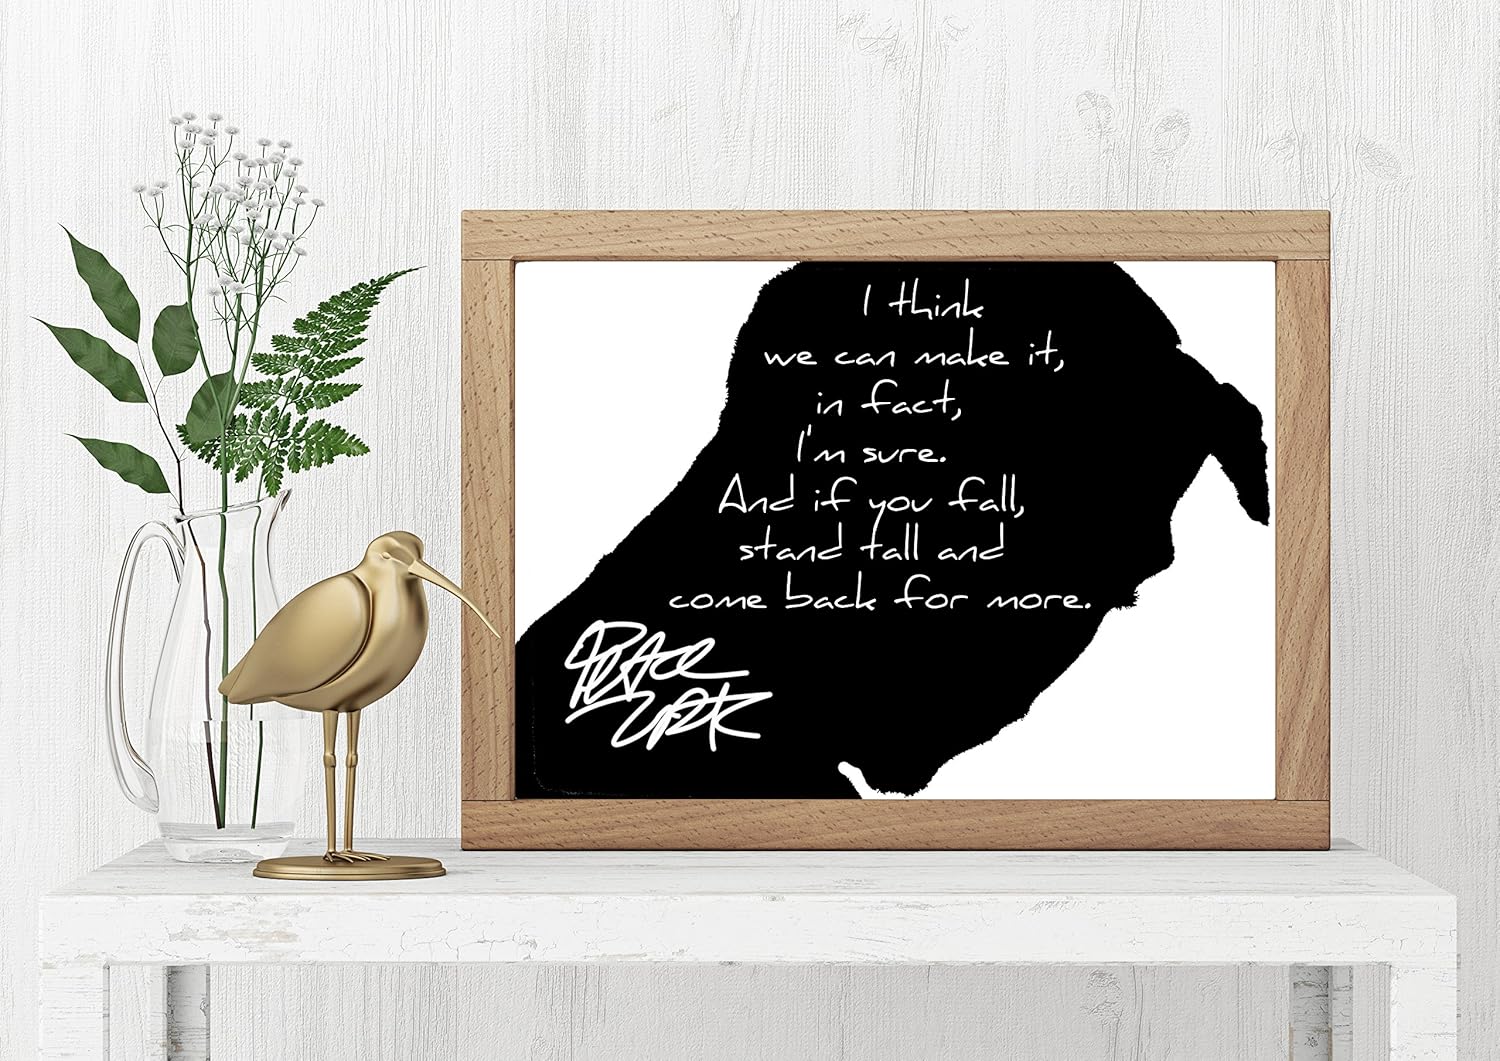 I think
we can make it,
in fact,
I'm sure.
And if you fall,
stand tall and
come back for more.
Peace